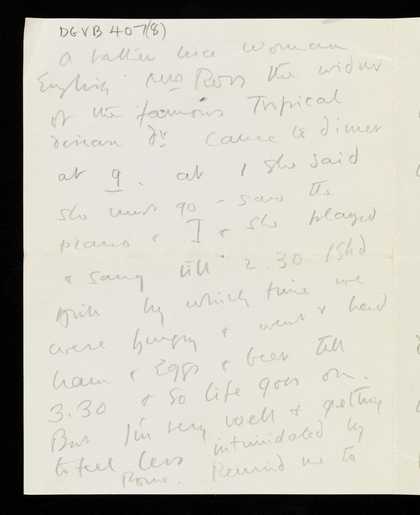 DGVB 407(8)
a rather nice woman
English Mrs Ross the widow
of the famous Tropical
disease Dr. came to dinner
at 9. at 1 she said
she must go – saw the
piano & I & she played
& sang till 2.30
by which time we
were hungry & went & had
ham & Eggs & beer till
3.30 & So life goes on.
But I'm very well & getting
to feel less intimidated by
Rome. Remind me to